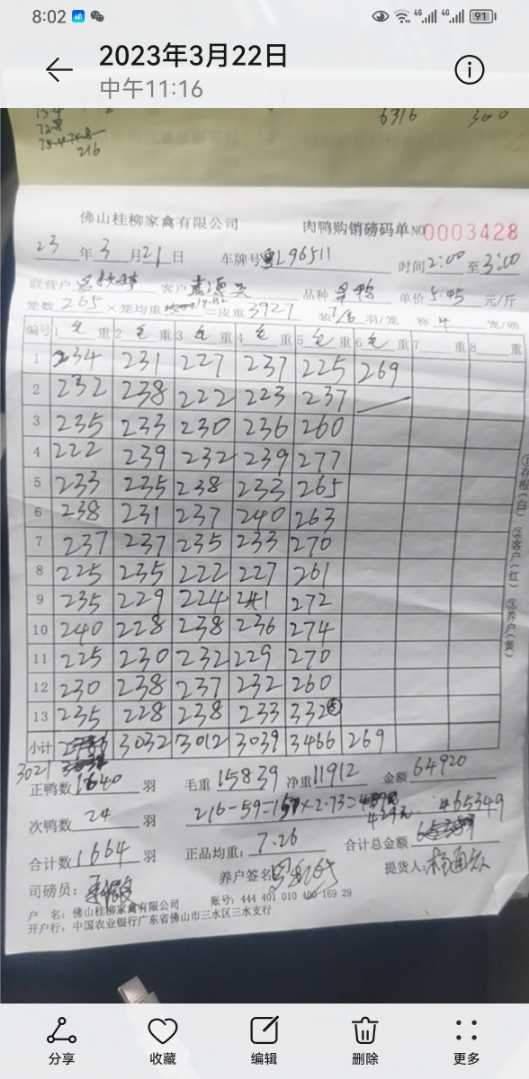 8:02 4G 4G 91
2023年3月22日
中午11:16
6316 300
216
佛山桂柳家禽有限公司 肉鸭购销磅码单 NO 0003428
23 年 3 月 21 日 车牌号 L96511 时间 2:00 至 3:00
联营户 客户 品种 单价 5.45 元/斤
笼数 265 × 笼均重 =皮重 3927 装 7/6 羽/笼 称 4 笼/磅
编号 1 毛 重 2 毛 重 3 毛 重 4 毛 重 5 毛 重 6 毛 重 7 重 8 重
1 234 231 227 237 225 269
2 232 238 222 223 237
3 235 233 230 236 260
4 222 239 232 239 277
5 233 235 238 233 265
6 238 231 237 240 263
7 237 237 235 233 270
8 225 235 222 227 261
9 235 229 224 241 272
10 240 228 238 236 274
11 225 230 232 229 270
12 230 238 237 232 260
13 235 228 238 233 332
小计 3032 3012 3039 3466 269
3021
正鸭数 1640 羽 毛重 15839 净重 11912 金额 64920
次鸭数 24 羽 216-59=157×2.73= 429元 #65349
合计数 1664 羽 正品均重: 7.26 合计总金额
司磅员: 养户签名 提货人:
户 名: 佛山桂柳家禽有限公司 账号: 444 401 010 400 169 29
开户行: 中国农业银行广东省佛山市三水区三水支行
分享 收藏 编辑 删除 更多